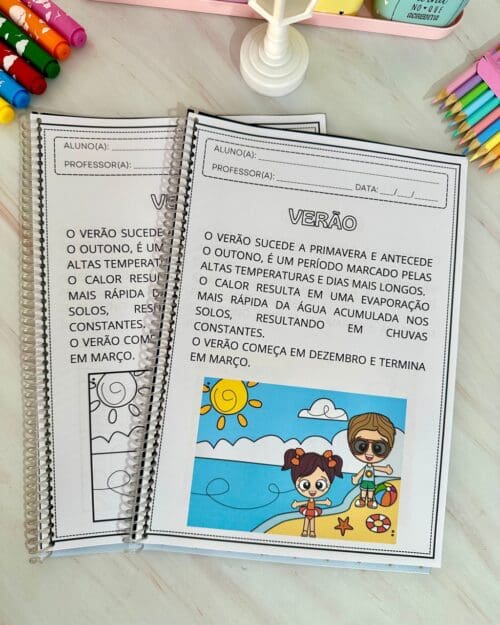 NO • QUE
ACREDITA
ALUNO(A):
PROFESSOR(A):
VE
O VERÃO SUCEDE
O OUTONO, É UM
ALTAS TEMPERAT
O CALOR RESUL
MAIS RÁPIDA D
SOLOS, RESU
CONSTANTES.
O VERÃO COM
EM MARÇO.
ALUNO(A):
PROFESSOR(A): DATA: __/__/__
VERÃO
O VERÃO SUCEDE A PRIMAVERA E ANTECEDE
O OUTONO, É UM PERÍODO MARCADO PELAS
ALTAS TEMPERATURAS E DIAS MAIS LONGOS.
O CALOR RESULTA EM UMA EVAPORAÇÃO
MAIS RÁPIDA DA ÁGUA ACUMULADA NOS
SOLOS, RESULTANDO EM CHUVAS
CONSTANTES.
O VERÃO COMEÇA EM DEZEMBRO E TERMINA
EM MARÇO.